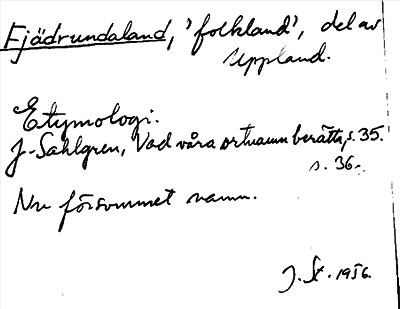 Fjädrundaland, 'folkland', del av
Uppland.
Etymologi:
J. Sahlgren, Vad våra ortnamn berätta, s. 35.
s. 36.
Nu försvunnet namn.
J. St. 1956.